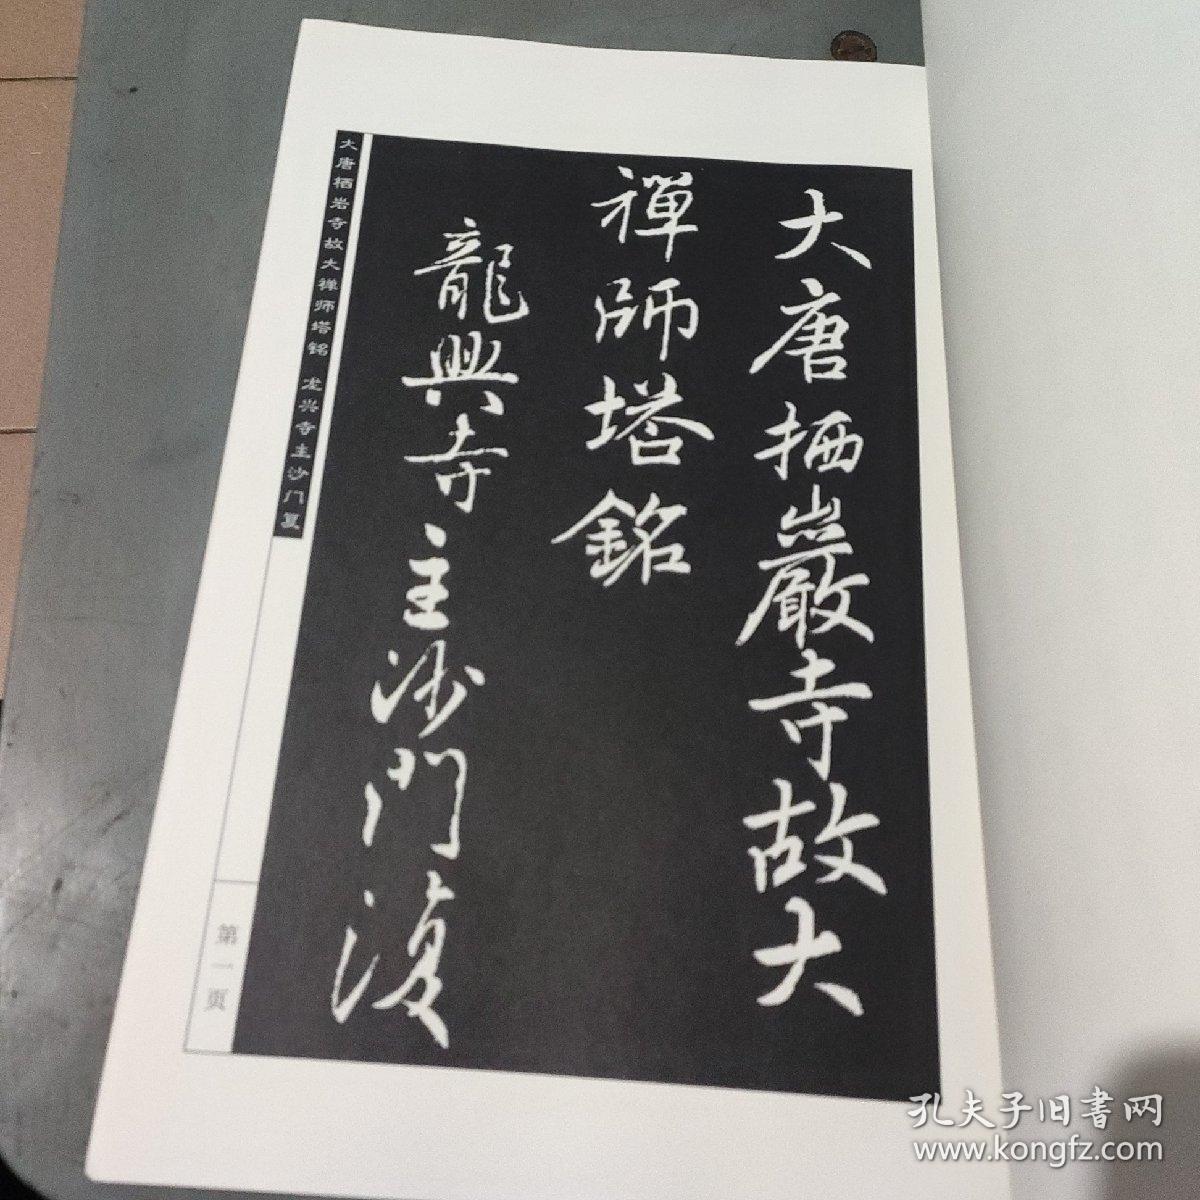 大唐栖巖寺故大
禪師塔銘
龍興寺主沙門復
大唐栖岩寺故大禅师塔铭 龙兴寺主沙门复
第一页
孔夫子旧书网
www.kongfz.com